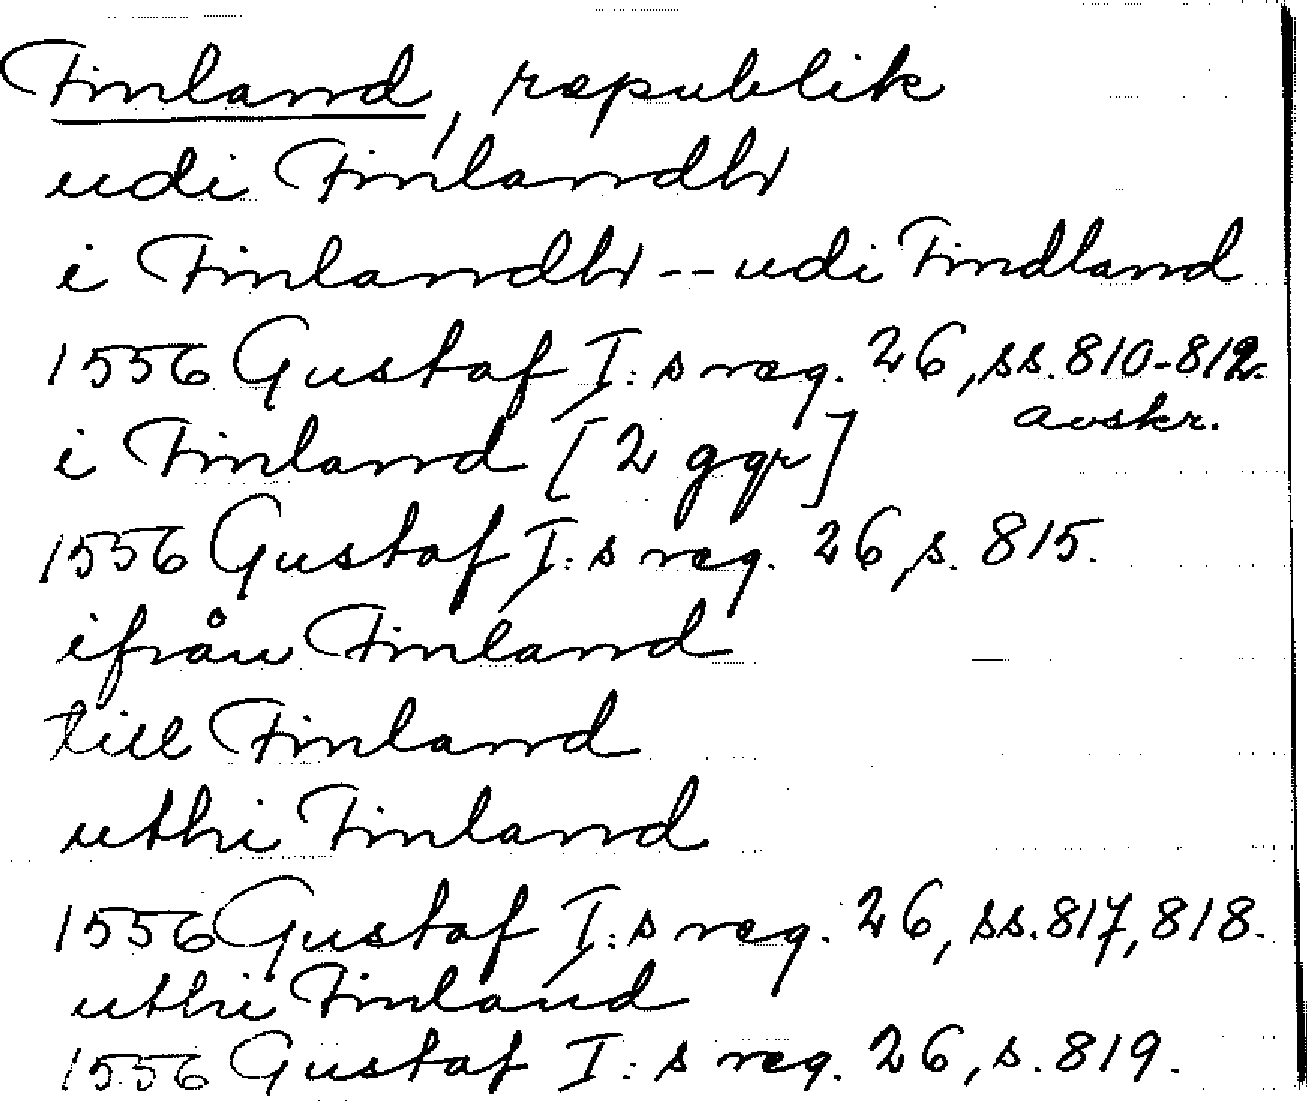 Finland, republik
udi Finlandh
i Finlandh -- udi Findland
1556 Gustaf I:s reg. 26, ss. 810-812.
avskr.
i Finland [2 ggr]
1556 Gustaf I:s reg. 26, s. 815.
ifrån Finland
till Finland
uthi Finland
1556 Gustaf I:s reg. 26, ss. 817, 818.
uthi Finland
1556 Gustaf I:s reg. 26, s. 819.